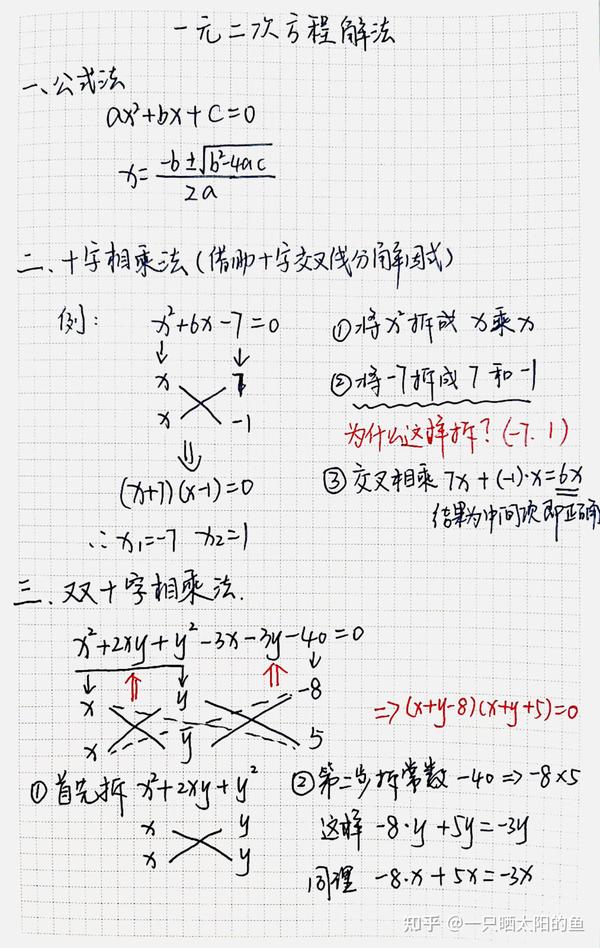 一元二次方程解法
一、公式法
ax²+bx+c=0
x=\frac{-b±\sqrt{b²-4ac}}{2a}
二、十字相乘法(借助十字交叉线分解因式)
例: x²+6x-7=0
x 7
x -1
(x+7)(x-1)=0
∴x₁=-7 x₂=1
①将x²拆成 x乘x
②将-7拆成 7和-1
为什么这样拆?(-7.1)
③交叉相乘 7x+(-1)·x=6x
结果为中间项即正确
三、双十字相乘法.
x²+2xy+y²-3x-3y-40=0
x y -8
x y 5
=>(x+y-8)(x+y+5)=0
①首先拆 x²+2xy+y²
x y
x y
②第二步拆常数 -40=>-8×5
这样 -8·y+5y=-3y
同理 -8·x+5x=-3x
知乎 @一只晒太阳的鱼